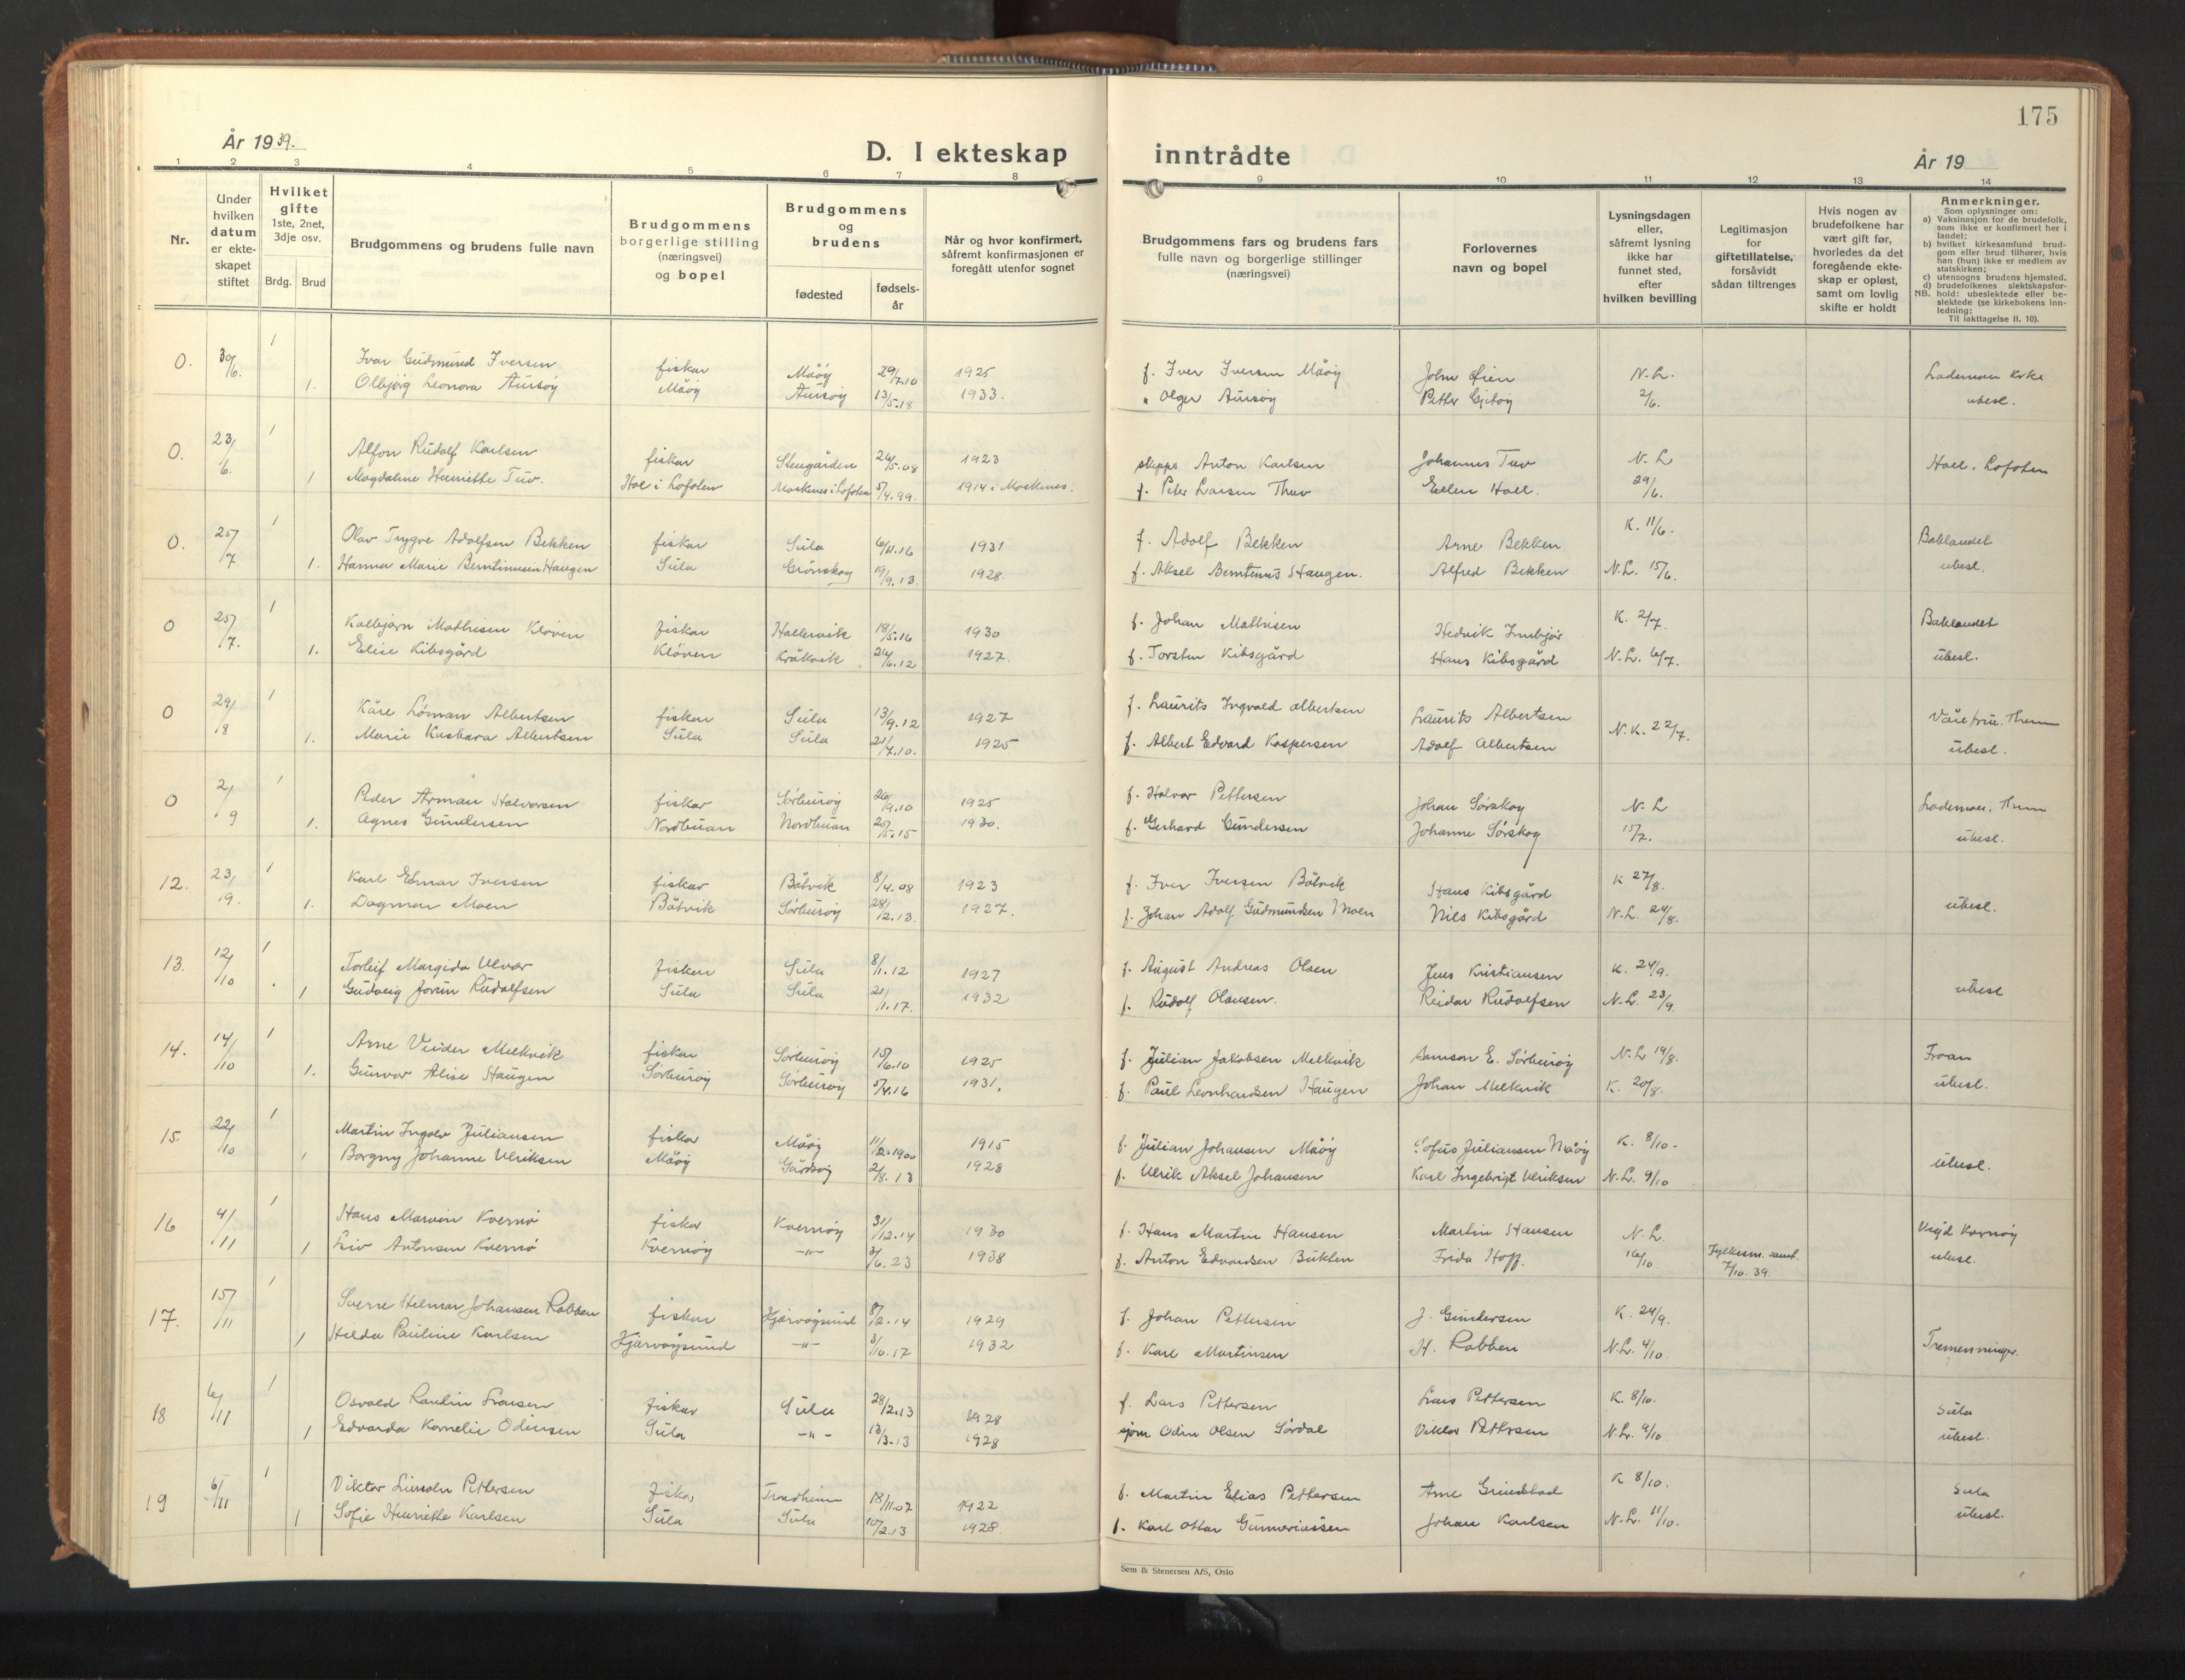 175
År 1939.
D. I ekteskap inntrådte
År 19
1 2 3 4 5 6 7 8 9 10 11 12 13 14
Nr.
Under hvilken datum er ekteskapet stiftet
Hvilket gifte 1ste, 2net, 3dje osv.
Brdg. Brud
Brudgommens og brudens fulle navn
Brudgommens borgerlige stilling (næringsvei) og bopel
Brudgommens og brudens
fødested
fødselsår
Når og hvor konfirmert, såfremt konfirmasjonen er foregått utenfor sognet
Brudgommens fars og brudens fars fulle navn og borgerlige stillinger (næringsvei)
Forlovernes navn og bopel
Lysningsdagen eller, såfremt lysning ikke har funnet sted, efter hvilken bevilling
Legitimasjon for giftetillatelse, forsåvidt sådan tiltrenges
Hvis nogen av brudefolkene har vært gift før, hvorledes da det foregående ekteskap er opløst, samt om lovlig skifte er holdt
Anmerkninger.
Som oplysninger om:
a) Vaksinasjon for de brudefolk, som ikke er konfirmert her i landet;
b) hvilket kirkesamfund brudgom eller brud tilhører, hvis han (hun) ikke er medlem av statskirken;
c) utensogns brudens hjemsted.
d) brudefolkenes slektskapsforhold: ubeslektede eller beslektede (se kirkebokens innledning;
NB.
Til iakttagelse II. 10).
0. 30/6. 1 Ivar Gudmund Iversen fiskar Måöy 29/7.10 1925 f. Iver Iversen Måöy John Öien N.L.
1. Olbjörg Leonora Aursöy Måöy Aursöy 13/5.18 1933. " Olger Aursöy Petter Gjetöy 2/6. ubesl.
0. 23/6. 1 Alfon Rudolf Karlsen fiskar Stengården 26/5.08 1923 skipps Anton Karlsen Johannes Tuv N.L Hoel i Lofoten
1 Magdaline Henriette Tuv. Hol i Lofoten Mosknes i Lofoten 5/4.99. 1914 i Moskenes. f. Peter Larsen Thuv Ellen Hoel. 29/6.
0. 25/7. 1 Olav Trygve Adolfsen Bekken fiskar Sula 6/11.16 1931 f. Adolf Bekken Arne Bekken K. 11/6.
1. Hanna Marie Berntinusen Haugen Sula Grönskog 19/9.13. 1928. f. Aksel Berntinus Haugen. Alfred Bekken N.L. 15/6. ubesl.
0 25/7. 1 Kolbjörn Mathisen Klöven fiskar Hallervik 18/5.16 1930 f. Johan Mathisen Hedvik K. 2/7.
1. Elise Kibsgård Klöven Kråkvik 26/6.12 1927. f. Torsten Kibsgård Hans Kibsgård N.L. 6/7. ubesl.
0 29/8 1 Kåre Löman Albertsen fiskar Sula 13/9.12 1927 f. Laurits Ingvald Albertsen Laurits Albertsen N.K. 22/7.
1. Marie Kasbara Albertsen Sula Sula 21/7.10. 1925 f. Albert Edvard Kaspersen Adolf Albertsen ubesl.
0 2/9 1 Peder Arman Halvorsen fiskar Sörburöy 26/9.10 1925 f. Halvor Pettersen Johan Sörskog N.L
1. Agnes Gundersen Nordbuan Nordbuan 25/5.15 1930. f. Gerhard Gundersen Johanne Sörskog 15/7. ubesl.
12. 23/9. 1 Karl Elmar Iversen fiskar Båtvik 8/4.08 1923 f. Iver Iversen Båtvik Hans Kibsgård K 27/8.
1. Dagmar Moen Båtvik Sörburöy 28/12.13. 1927. f. Johan Adolf Gudmundsen Moen Nils Kibsgård N.L. 24/8. ubesl.
13. 12/10 1 Torleif Margido Ulvær fiskar Sula 8/1.12 1927 f. August Andreas Olsen Jens Kristiansen K. 24/9.
1 Gudveig Jorun Rudolfsen Sula Sula 21/1.17. 1932 f. Rudolf Olausen. Reidar Rudolfsen N.L. 23/9. ubesl
14. 14/10 1 Arne Veider Melkvik fiskar Sörburöy 15/6.10 1925 f. Julian Jakobsen Melkvik Samson E. Sörburöy N.L 19/8. Froan
1. Gunvor Alise Haugen Sörburöy Sörburöy 5/4.16 1931. f. Paul Leonhardsen Haugen Johan Melkvik K. 20/8. ubesl.
15. 22/10 1 Martin Ingolv Juliansen fiskar Måöy 11/2.1900 1915 f. Julian Johansen Måöy Sofus Juliansen Måöy K. 8/10.
1 Borgny Johanne Ulriksen Måöy Gårdsöy 2/8.13 1928 f. Ulrik Aksel Johansen Karl Ingebrigt Ulriksen N.L. 9/10 ubesl.
16 4/11 1 Hans Marvin Kvernö fiskar Kvernöy 31/12.14 1930 f. Hans Martin Hansen Martin Hansen N.L.
1 Liv Antonsen Kvernö Kvernöy -"- 3/6.23 1938 f. Anton Edvardsen Bukten Frida Hoff. 16/10 Fylkesm. samt. 7/10.39. ubesl.
17. 15/11 1 Sverre Hilmar Johansen Robben fiskar Hjervågsund 8/2.14 1929 f. Johan Pettersen J. Gundersen K. 24/9.
1 Hilda Pauline Karlsen Hjervågsund -"- 3/10.17 1932 f. Karl Martinsen H. Robben N.L. 4/10 Tremenninger.
18 6/11 1 Osvald Paulin Larsen fiskar Sula 28/2.13 1928 f. Lars Pettersen Lars Pettersen K. 8/10. Sula
1 Edvarda Kornelie Odinsen Sula -"- 13/3.13 1928 sjöm Odin Olsen Sördal Viktor Pettersen N.L. 9/10 ubesl.
19 6/11 1 Viktor Lincoln Pettersen fiskar Trondheim 18/11.07 1922 f. Martin Elias Pettersen Arne Grindstad K 8/10. Sula
1 Sofie Henriette Karlsen Sula Sula 10/2.13 1928. f. Karl Ottar Gunneriussen Johan Karlsen N.L. 11/10. ubesl.
Sem & Stenersen A/S, Oslo